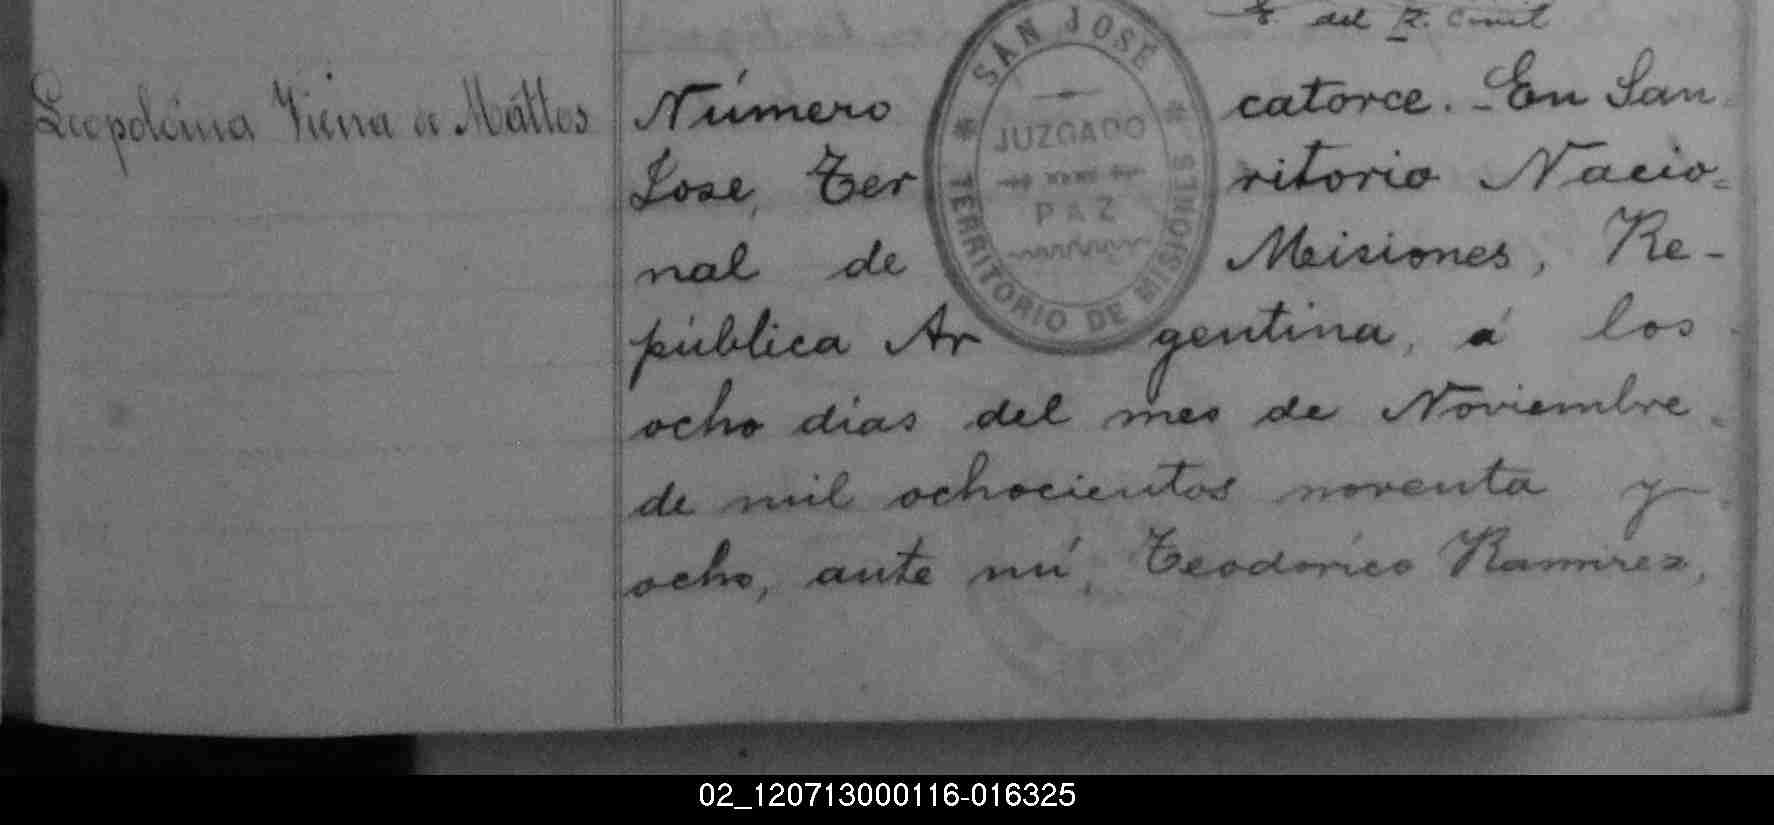 E. del R. Civil
Leopoldina Viera de Máttos
Número catorce. - En San
Jose, Ter ritorio Nacio=
nal de Misiones, Re-
pública Ar gentina, á los
ocho dias del mes de Noviembre
de mil ochocientos noventa y
ocho, ante mí, Teodorico Ramirez,
SAN JOSÉ
JUZGADO
PAZ
TERRITORIO DE MISIONES
02_120713000116-016325